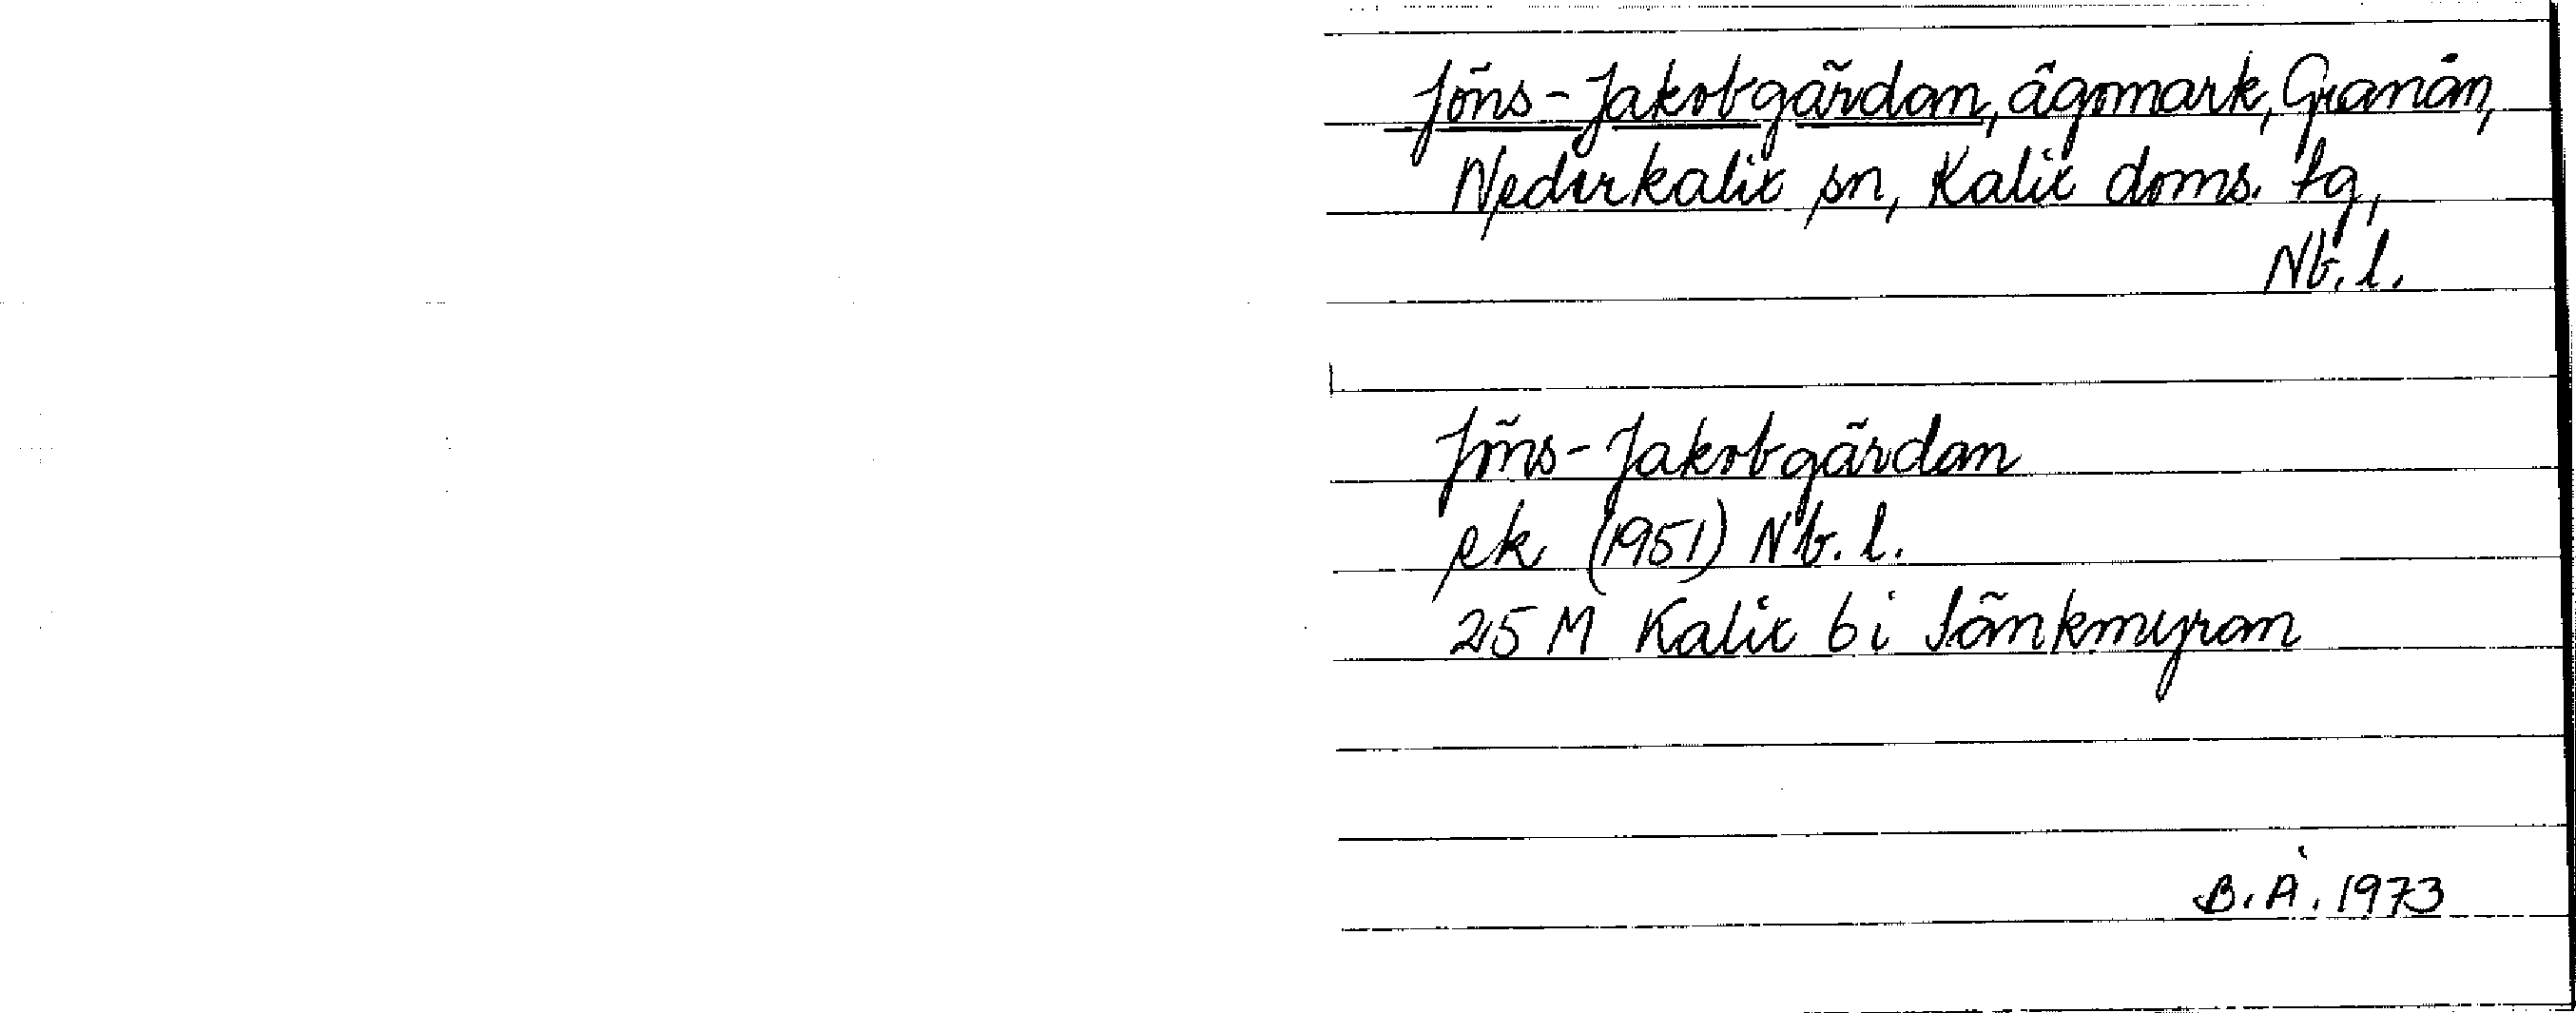 Jöns-Jakobgärdan, ägomark, Granån,
Nederkalix sn, Kalix doms. tg,
Nb. l.
Jöns-Jakobgärdan
ek (1951) Nb. l.
25 M Kalix 6 i Sänkmyran
B. Å. 1973